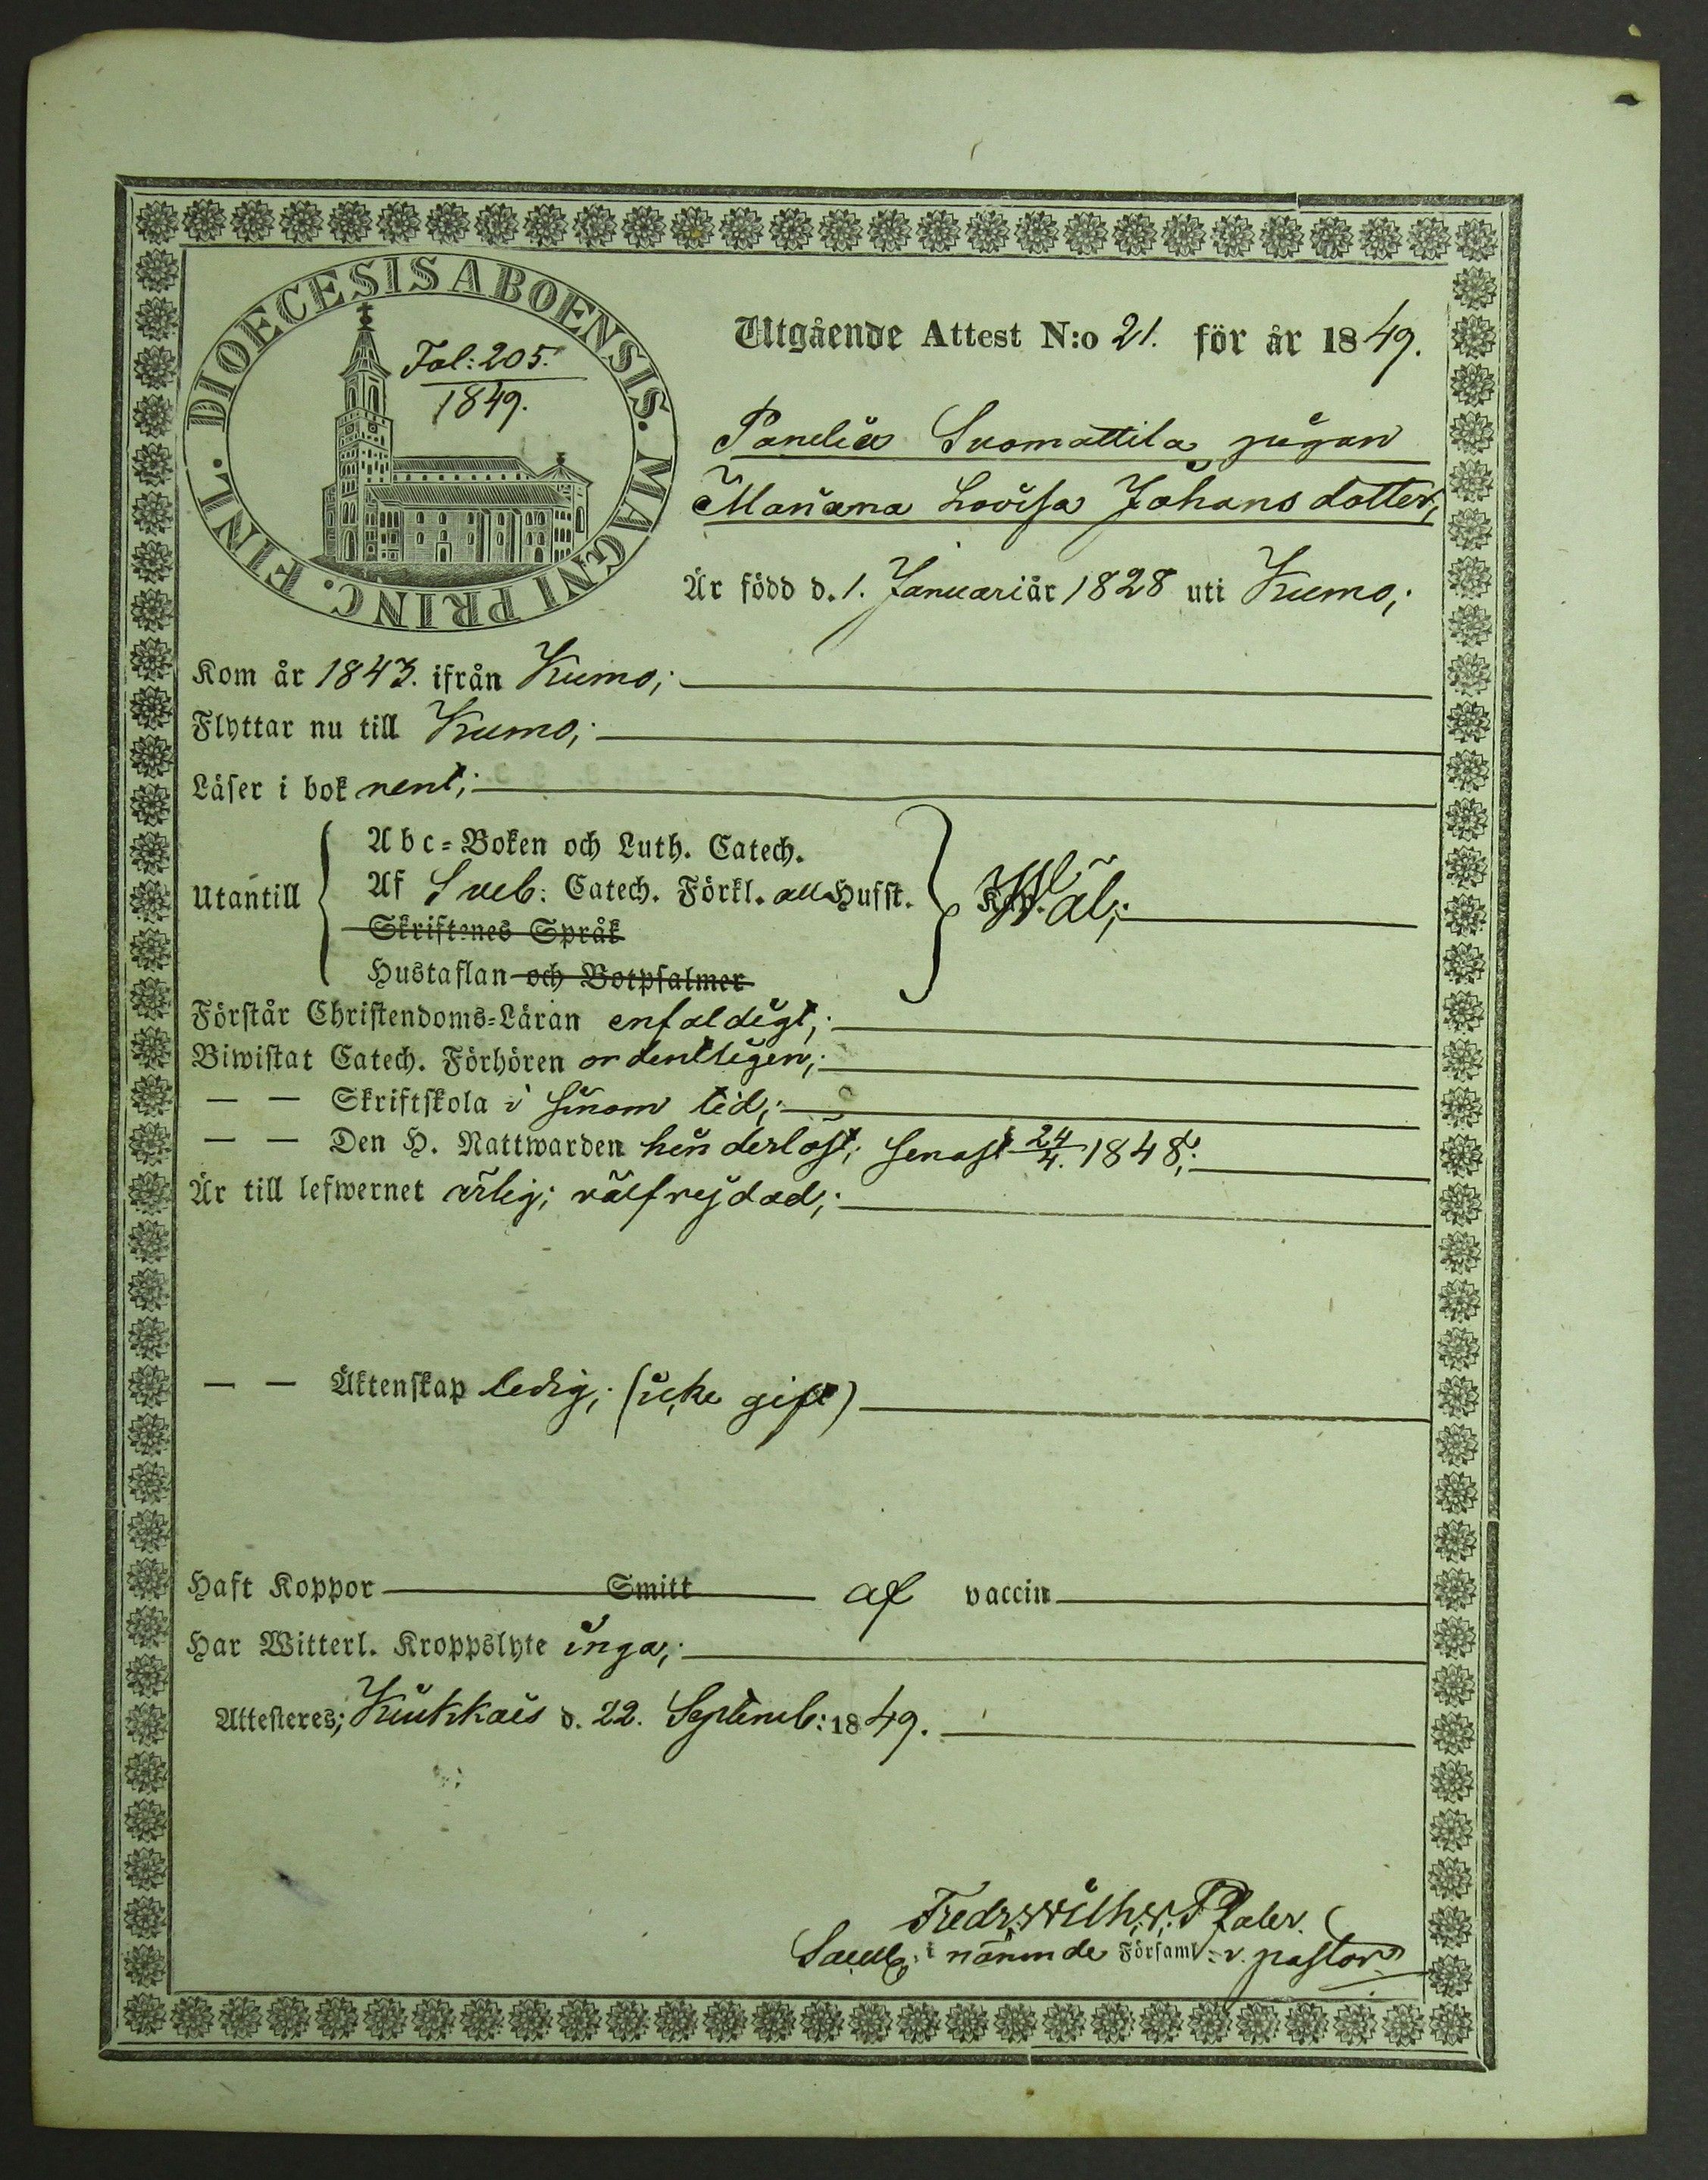 DIOECESIS ABOENSIS. MAGNI PRINC. FINL.
Fol: 205.
1849.
Utgående Attest N:o 21. för år 1849.
Panelia Suomattila pigan
Mariana Lovisa Johans dotter,
Är född d. 1. Januari år 1828 uti Kumo;
Kom år 1843. ifrån Kumo;
Flyttar nu till Kumo;
Läser i bok rent;
Utantill
Abc-Boken och Luth. Catech.
Af Sveb: Catech. Förkl. all Husst.
Wäl;
Skriftenes Språk
Hustaflan och Botpsalmer
Förstår Christendoms-Läran enfaldigt;
Biwistat Catech. Förhören ordentligen;
— — Skriftskola i sinom tid;
— — Den H. Nattwarden hinderlöst; senast 24/4. 1848;
Är till lefwernet ärlig; välfrejdad;
— — Äktenskap ledig; (icke gift)
Haft Koppor Smitt af vaccin
Har Witterl. Kroppslyte inga;
Attesteres; Kiukkais d. 22. Septemb: 1849.
Fredr. Wilh.
i nämnde Församl: v. pastor